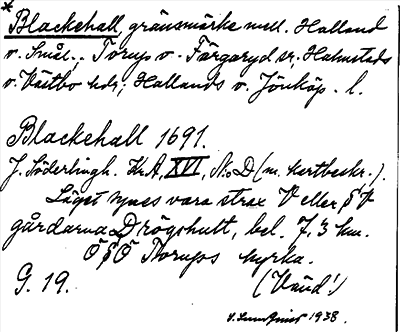 * Blackehall, gränsmärke mell. Halland
o. Smål., Torup o. Färgaryd sr, Halmstads
o. Västbo hdr; Hallands o. Jönköp. l.
Blackehall 1691.
J. Söderlingh. Kr.A, XVI, No D (m. kartbeskr.).
Läget synes vara strax V eller SV
gårdarna Drögshult, bel. 7,3 km.
ÖSÖ Torups kyrka.
G. 19. (Vänd!)
1938.